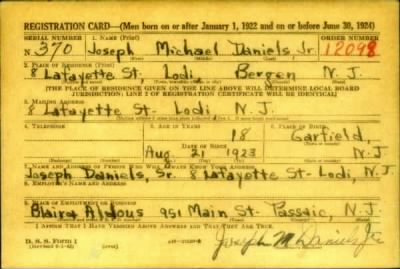 REGISTRATION CARD—(Men born on or after January 1, 1922 and on or before June 30, 1924)
SERIAL NUMBER 1. NAME (Print) ORDER NUMBER
N 370 Joseph Michael Daniels Jr. 12098
(First) (Middle) (Last)
2. PLACE OF RESIDENCE (Print)
8 Lafayette St, Lodi Bergen N. J.
[THE PLACE OF RESIDENCE GIVEN ON THE LINE ABOVE WILL DETERMINE LOCAL BOARD
JURISDICTION; LINE 2 OF REGISTRATION CERTIFICATE WILL BE IDENTICAL]
3. MAILING ADDRESS
8 Lafayette St- Lodi N. J.
4. TELEPHONE 5. AGE IN YEARS 6. PLACE OF BIRTH
18 Garfield,
DATE OF BIRTH
Aug 21 1923 N. J
7. NAME AND ADDRESS OF PERSON WHO WILL ALWAYS KNOW YOUR ADDRESS
Joseph Daniels, Sr. 8 Lafayette St- Lodi, N. J.
8. EMPLOYER'S NAME AND ADDRESS
Blair Aldous 951 Main St- Passaic, N. J.
9. PLACE OF EMPLOYMENT OR BUSINESS
I AFFIRM THAT I HAVE VERIFIED ABOVE ANSWERS AND THAT THEY ARE TRUE.
D. S. S. FORM 1
Joseph M Daniels Jr